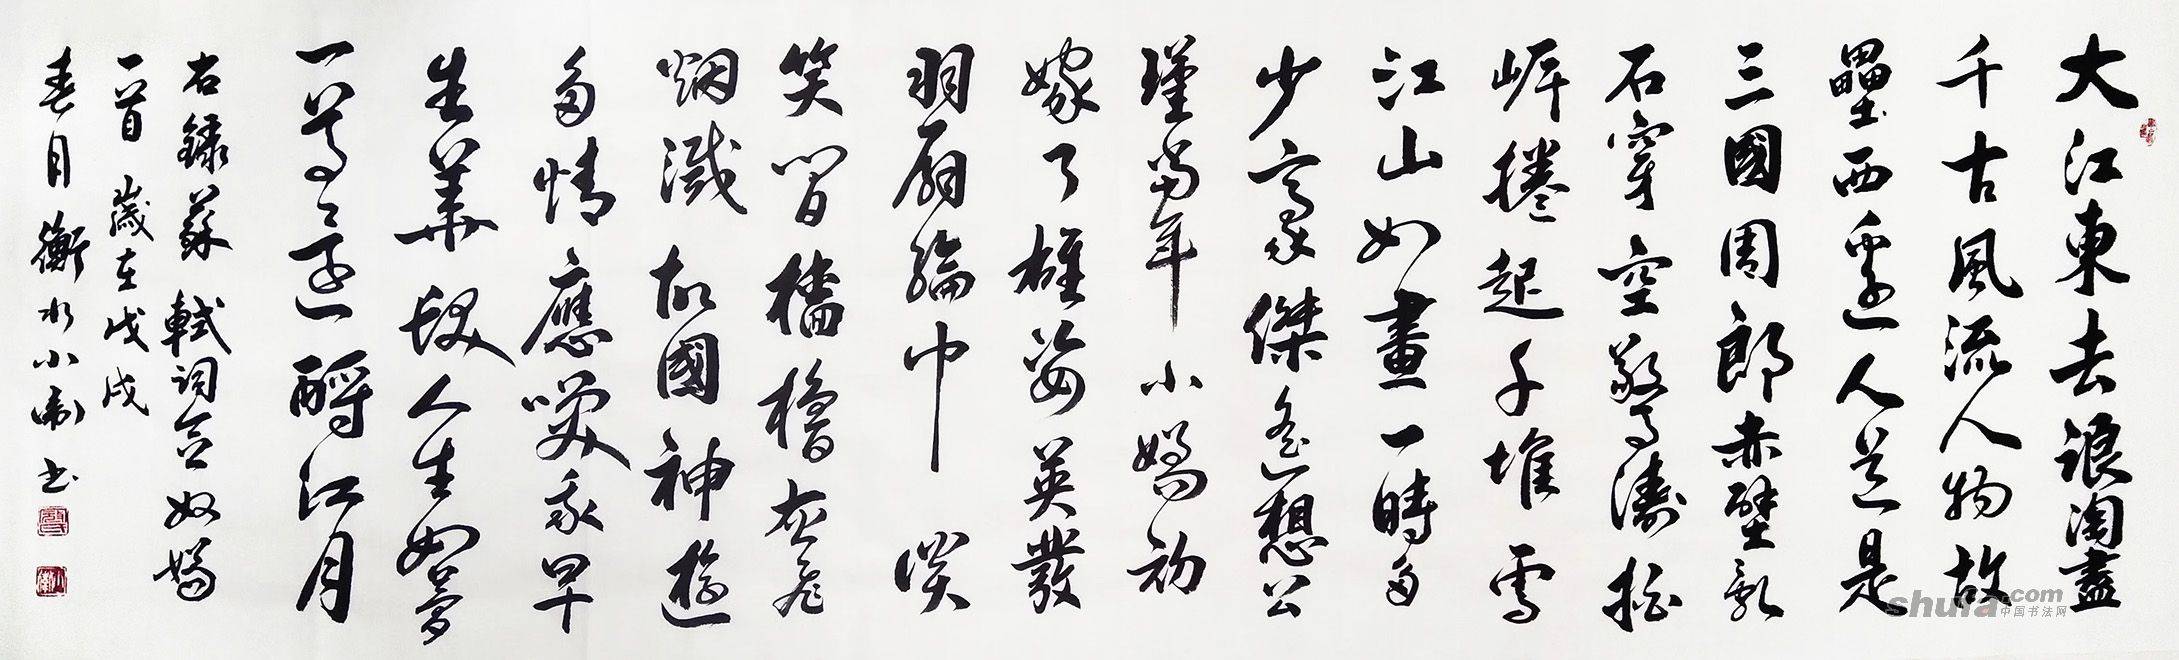 大江東去浪淘盡
千古風流人物故
壘西邊人道是
三國周郎赤壁亂
石穿空驚濤拍
岸捲起千堆雪
江山如畫一時多
少豪傑遙想公
瑾當年小嬌初
嫁了雄姿英發
羽扇綸巾談
笑間檣櫓灰飛
烟滅故國神遊
多情應笑我早
生華髮人生如夢
一尊還酹江月
右錄蘇軾詞念奴嬌
一首歲在戊戌
春月衡水小衛书
shufa.com
中国书法网